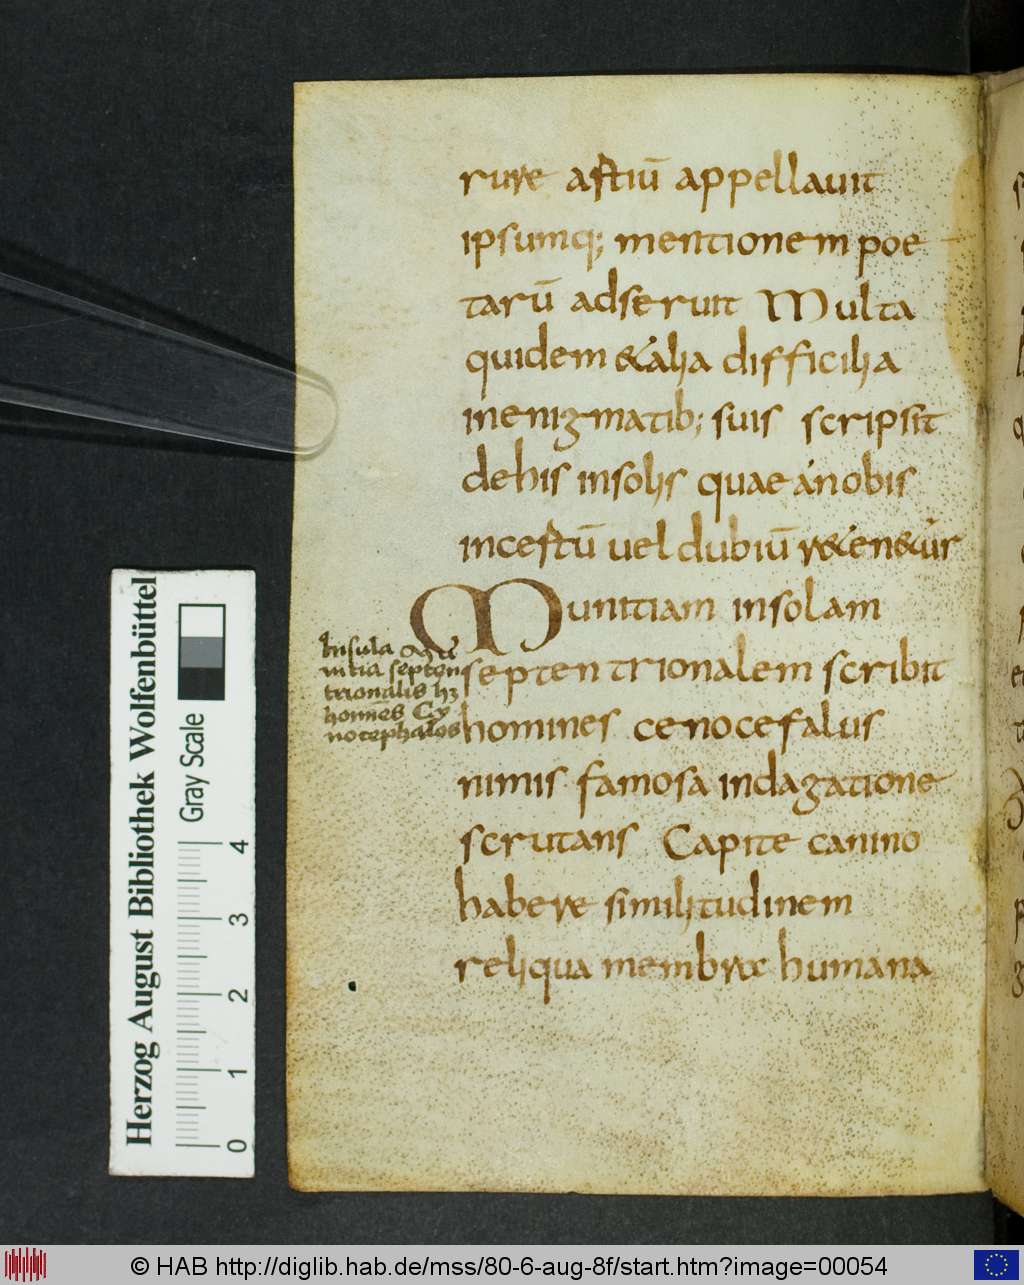 rure astiū appellauit
ipsumq; mentionem poe
tarū adseruit Multa
quidem & alia difficilia
inenigmatib; suis scripsit
dehis insolis quae ánobis
incestū uel dubiū r&en&ur
Munitiam insolam
septentrionalem scribit
homines cenocefalus
nimis famosa indagatione
scrutans Capite canino
habere similitudinem
reliqua membra humana
Insula Mu
nitia septen
trionalis h3
homēs Cy
nocephalos
Herzog August Bibliothek Wolfenbüttel
Gray Scale
0 1 2 3 4
© HAB http://diglib.hab.de/mss/80-6-aug-8f/start.htm?image=00054